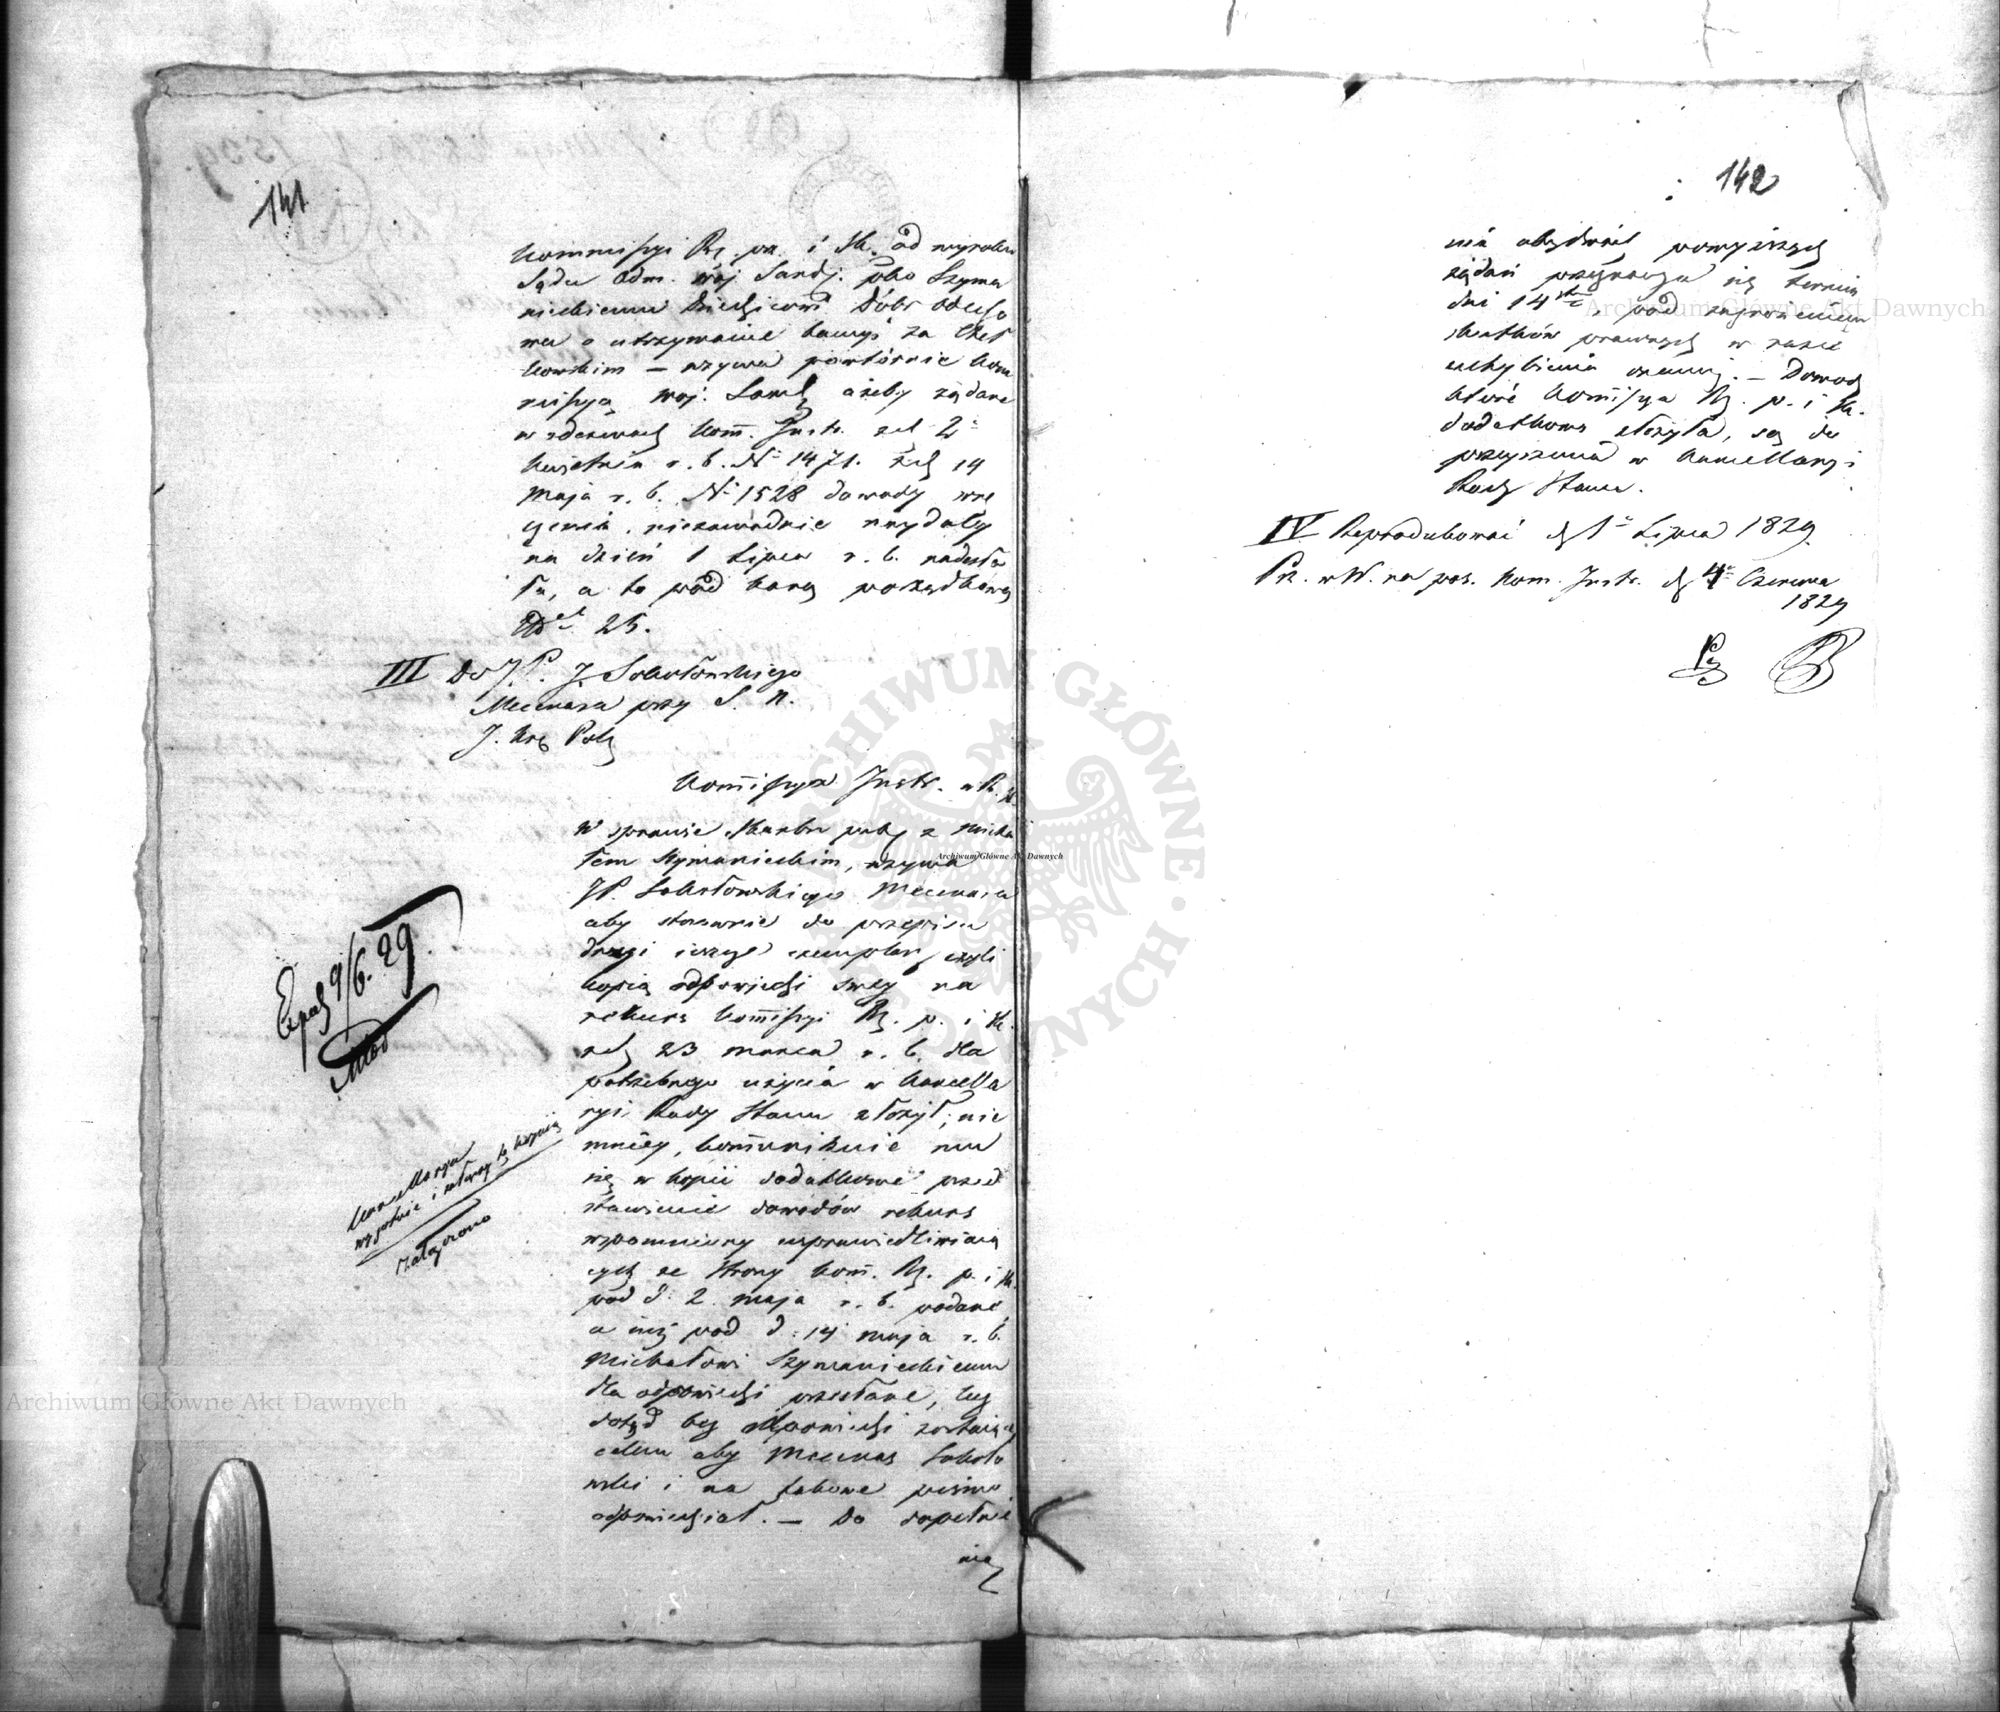 141
Kommissyi Rz. prz. i Sk. od wyroku
Sądu Adm. Woj. Sandj. pko Szyma
nieckiemu Dziedzicowi Dóbr
wa o utrzymanie za
kowskim — wzywa powtórnie Kom
missyą Woj. Sand. ażeby żądane
w odezwach Komm. Instr. z d. 2
Kwietnia r. b. № 1471. z d. 14
Maja r. b. № 1528 dowody wrę
czenia, niezawodnie najdaley
na dzień 1 Lipca r. b. nadesła
ła, a to pod karą porządkową
25.
III Do J. P. J. Sobotowskiego
Mecenasa przy S. N.
J. Krs Pols
Kommissya Instr. w R. S.
W sprawie Skarbu publ z Micha
łem Szymanieckim, wzywa
JP. Sobotowskiego Mecenasa
aby stosownie do przepisu
drugi ieszcze exemplarz czyli
kopią odpowiedzi swey na
rekurs Kommissyi Rz. p. i Sk.
z d. 23 marca r. b. dla
potrzebnego użycia w Kancella
ryi Rady Stanu złożył; nie
mniey, kommunikuie mu
się w kopii dodatkowe przed
stawienie dowodów rekurs
wspomniony usprawiedliwiaią
cych ze strony Kom. Rz. p. i Sk.
pod d. 2. maja r. b. podane,
a iuż pod d: 14 maja r. b.
Michałowi Szymanieckiemu
dla odpowiedzi przesłane, lecz
dotąd bez odpowiedzi zostaiące
celem aby Mecenas Soboto
wski i na takowe pismo
odpowiedział. — Do dopełnie
nia
Exped 9/6. 29.
Kancellarya
wygotuie i załączy tę kopią
Załączono
142
nia obydwóch powyższych
żądań przeznacza się termin
dni 14stu, pod zagrożeniem
skutków prawnych w razie
uchybienia onemuż. — Dowody
które Kommissya Rz. p. i Sk.
dodatkowo złożyła, są do
przeyrzenia w Kancellaryi
Rady Stanu.
IV Reprodukować d. 1 Lipca 1829.
Prz. w W. na pos. Kom. Instr. d. 4 Czerwca
1829
Archiwum Główne Akt Dawnych
Archiwum Główne Akt Dawnych
Archiwum Główne Akt Dawnych
ARCHIWUM GŁÓWNE AKT DAWNYCH